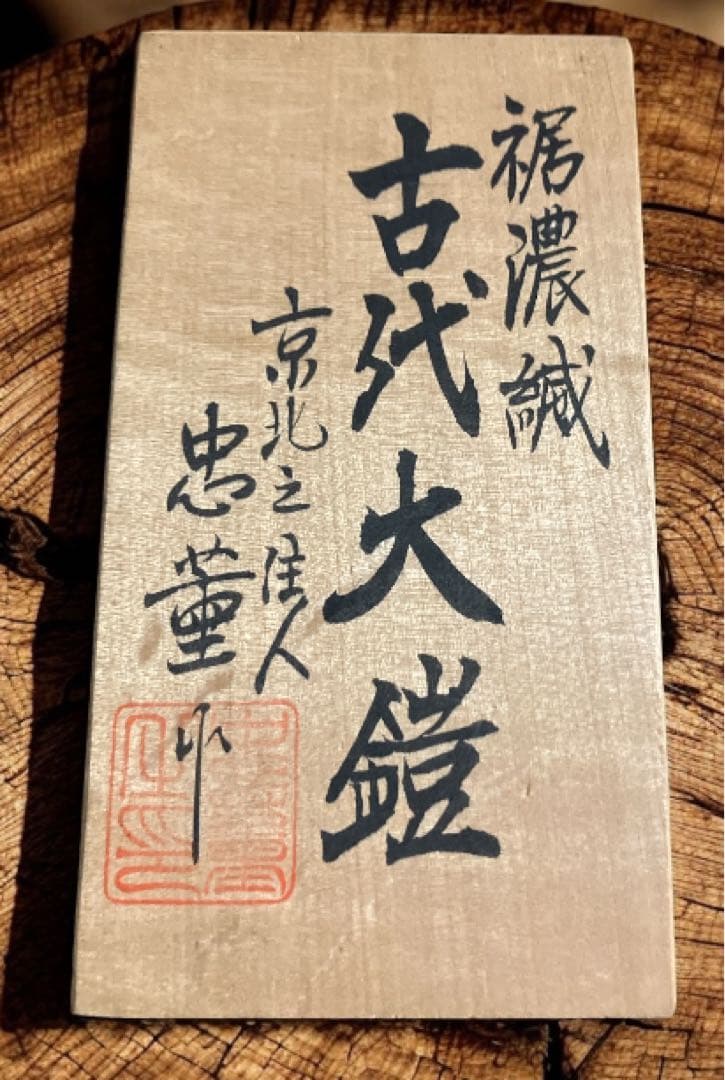 裾濃縅
古代大鎧
京北之住人
忠薫作